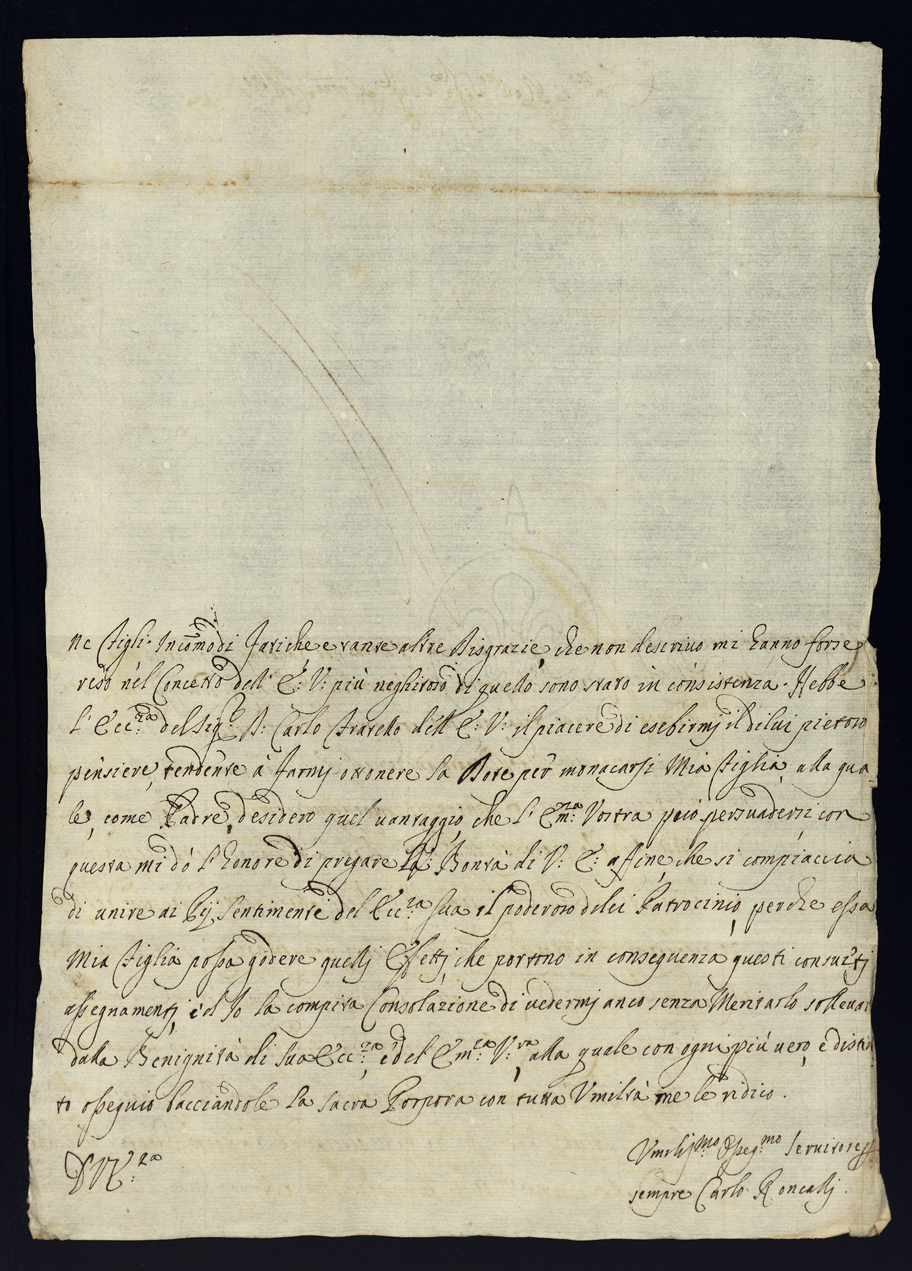 ne Figli. Incomodi Fariche e vante altre Disgrazie, che non descrivo mi hanno forse
reso nel Concetto dell' E: V: più neghitoso di quello sono stato in consistenza. Hebbe
L' Ecc:za del Sigr D: Carlo Fratello dell E: V: il piacere di esebirmj il dilui pietoso
pensiere, tendente à farmj ottonere la Dote per monacarsi Mia Figlia, alla qua
le, come Padre, desidero quel vantaggio, che L' Em:za Vostra può persuadersi, con
questa mi dò l'honore di pregare La Bontà di V: E: affine, che si compiaccia
di unire ai Pij Sentimenti del Ecc:za Sua il poderoso dilei Patrocinio, perche essa
Mia Figlia possa godere quellj Effettj, che portono in conseguenza questi consuetj
assegnamentj, ed Io la compita Consolazione di vedermj anco senza Meritarlo sollevat
dalla Benignità di Sua Ecc:za, e del Em:za V:ra, alla quale con ogni più vero, e disti
to ossequio bacciandole La Sacra Porpora con tutta Vmiltà me le ridico.
D V E:za
Vmilij:mo Osseq:mo Servitore
sempre Carlo Roncallj.
A